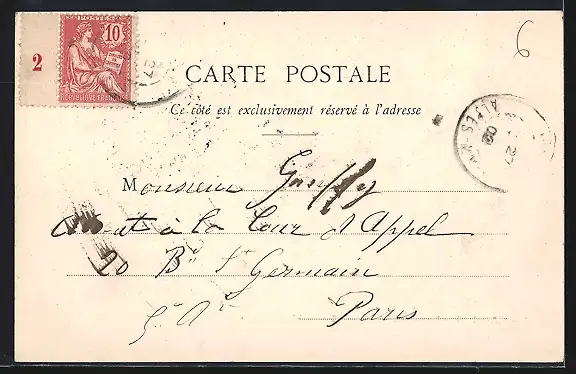 POSTES
10
2
RÉPUBLIQUE FRANÇAISE
6
CARTE POSTALE
Ce côté est exclusivement réservé à l'adresse
ALPES-M
27
02
Monsieur
à la Cour d'Appel
20 Bd St Germain
Paris